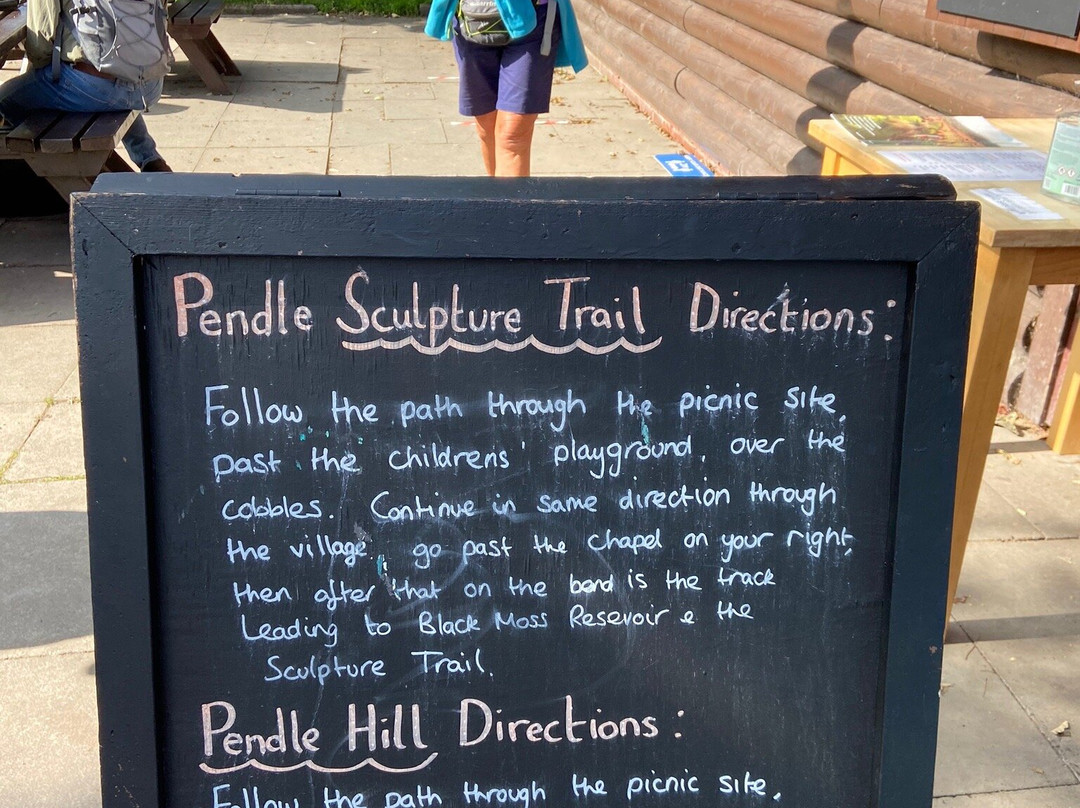 Pendle Sculpture Trail Directions:
Follow the path through the picnic site,
past the childrens' playground, over the
cobbles. Continue in same direction through
the village. go past the chapel on your right,
then after that on the bend is the track
Leading to Black Moss Resevoir & the
Sculpture Trail.
Pendle Hill Directions:
Follow the path through the picnic site,